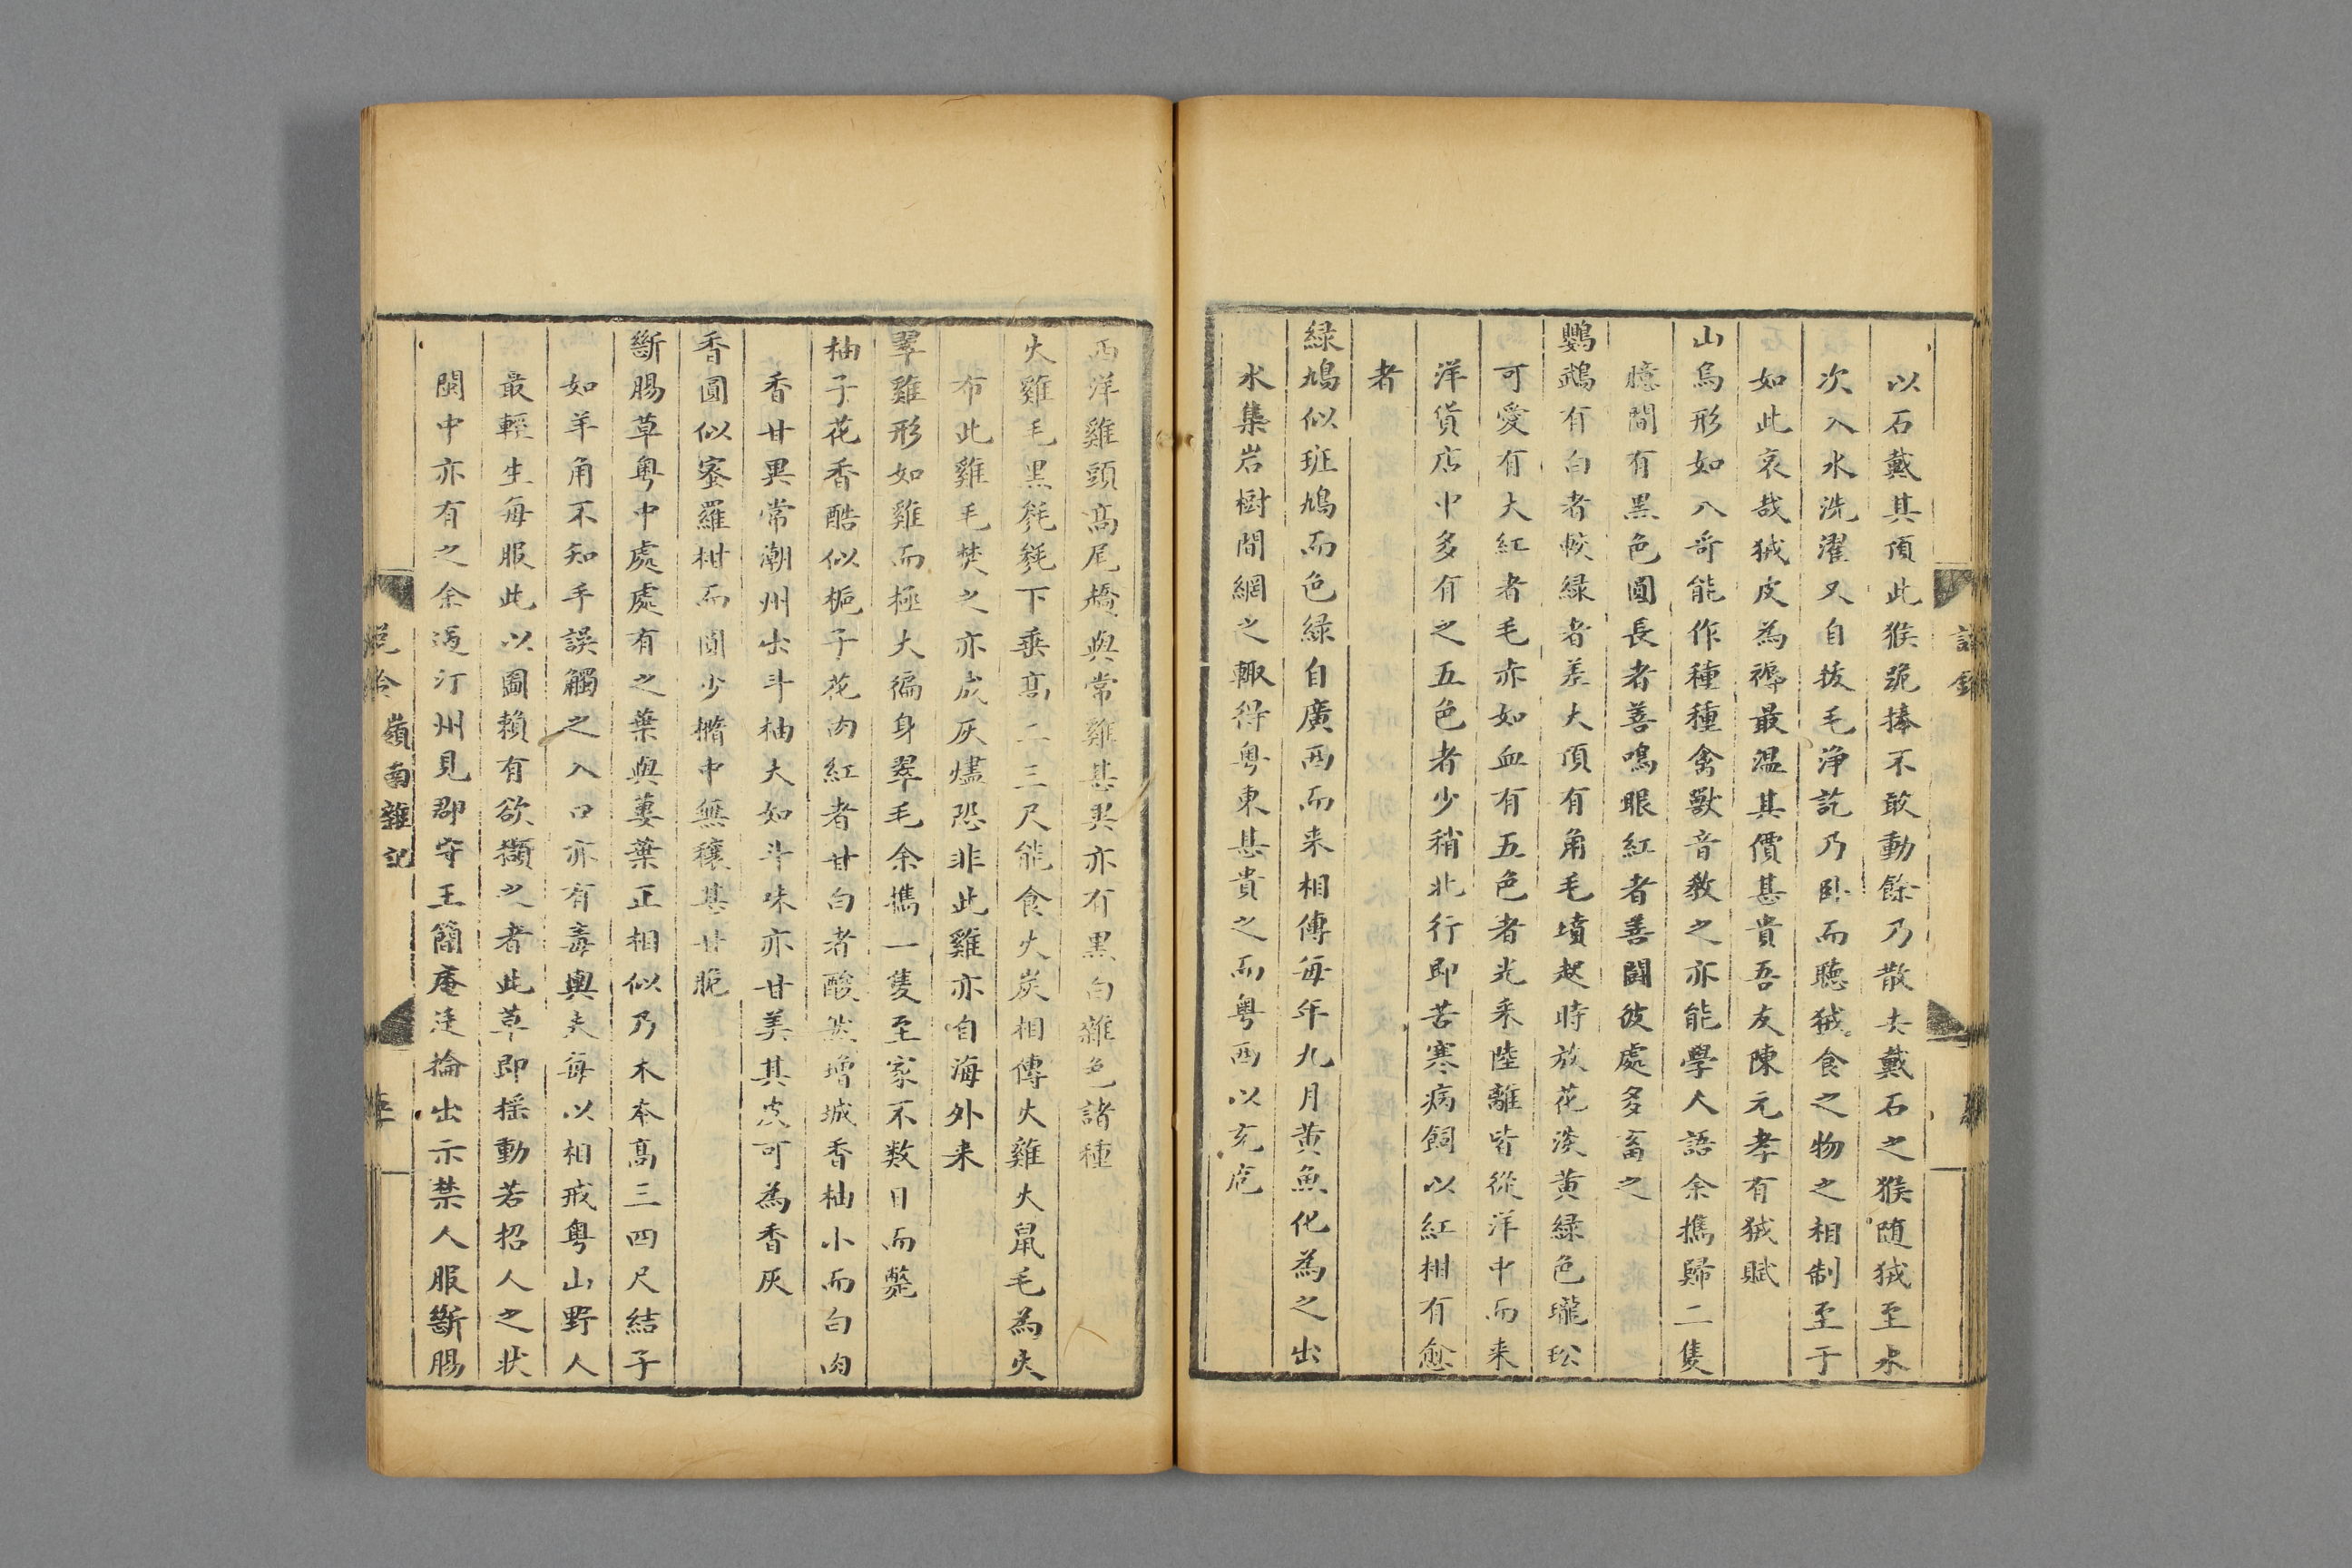 以石戴其頂此猴跪捧不敢動餘乃散去戴石之猴随狨至水
次入水洗濯又自拔毛浄訖乃卧而聽狨食之物之相制至于
如此哀哉狨皮為褥最温其價甚貴吾友陳元孝有狨賦
山烏形如八哥能作種種禽獸音教之亦能學人語余攜歸二隻
臆間有黒色圓長者善鳴眼紅者善鬪彼處多畜之
鸚鵡有白者較緑者差大頂有角毛墳起時放花淡黄緑色瓏玜
可愛有大紅者毛赤如血有五色者光釆陸離皆從洋中而来
洋貨店中多有之五色者少稍北行即苦寒病飼以紅柑有愈
者
緑鳩似班鳩而色緑自廣西而来相傳每年九月黄魚化為之出
水集岩樹間網之輙得粤東甚貴之而粤西以充庖
西洋雞頭髙尾橋與常雞甚異亦有黒白雜色諸種
火雞毛黒毵毵下垂髙二三尺能食火炭相傳火雞火鼠毛為火
布此雞毛焚之亦成灰燼恐非此雞亦自海外来
翠雞形如雞而極大徧身翠毛余攜一隻至家不数日而斃
柚子花香酷似梔子花肉紅者甘白者酸然增城香柚小而白肉
香甘異常潮州出斗柚大如斗味亦甘美其皮可為香灰
香圓似蜜羅柑而圓少橢中無穰甚甘脆
斷腸草粤中處處有之葉與蔞葉正相似乃木本髙三四尺結子
如羊角不知手誤觸之入口亦有毒輿夫每以相戒粤山野人
最輕生每服此以圖賴有欲擷之者此草即揺動若招人之状
閩中亦有之余過汀州見郡守王簡庵廷掄出示禁人服斷腸
說鈴
嶺南雜記